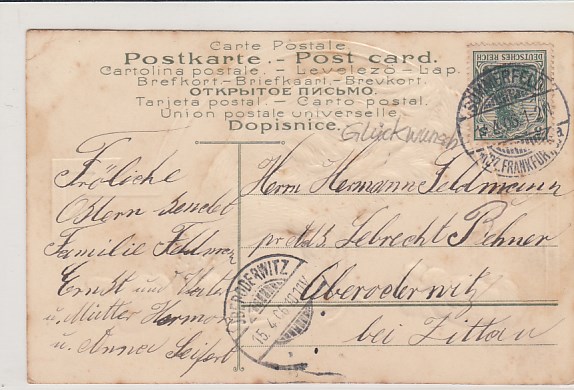 Carte Postale.
Postkarte. - Post card.
Cartolina postale. - Levelező - Lap.
Brefkort.-Briefkaart.- Brevkort.
ОТКРЫТОЕ ПИСЬМО.
Tarjeta postal. - Carto postal.
Union postale universelle.
Dopisnice.
Glückwunsch
DEUTSCHES REICH
SOMMERFELD
FRANKFURT
Fröliche
Ostern sendet
Familie Feldman
Ernst und
u. Mutter Herman
u. Anna Seifert
Herrn Hermann Feldmann
pr. ad. Lebrecht Pehner
Oberoderwitz
bei Zittau
OBERODERWITZ
15.4.06